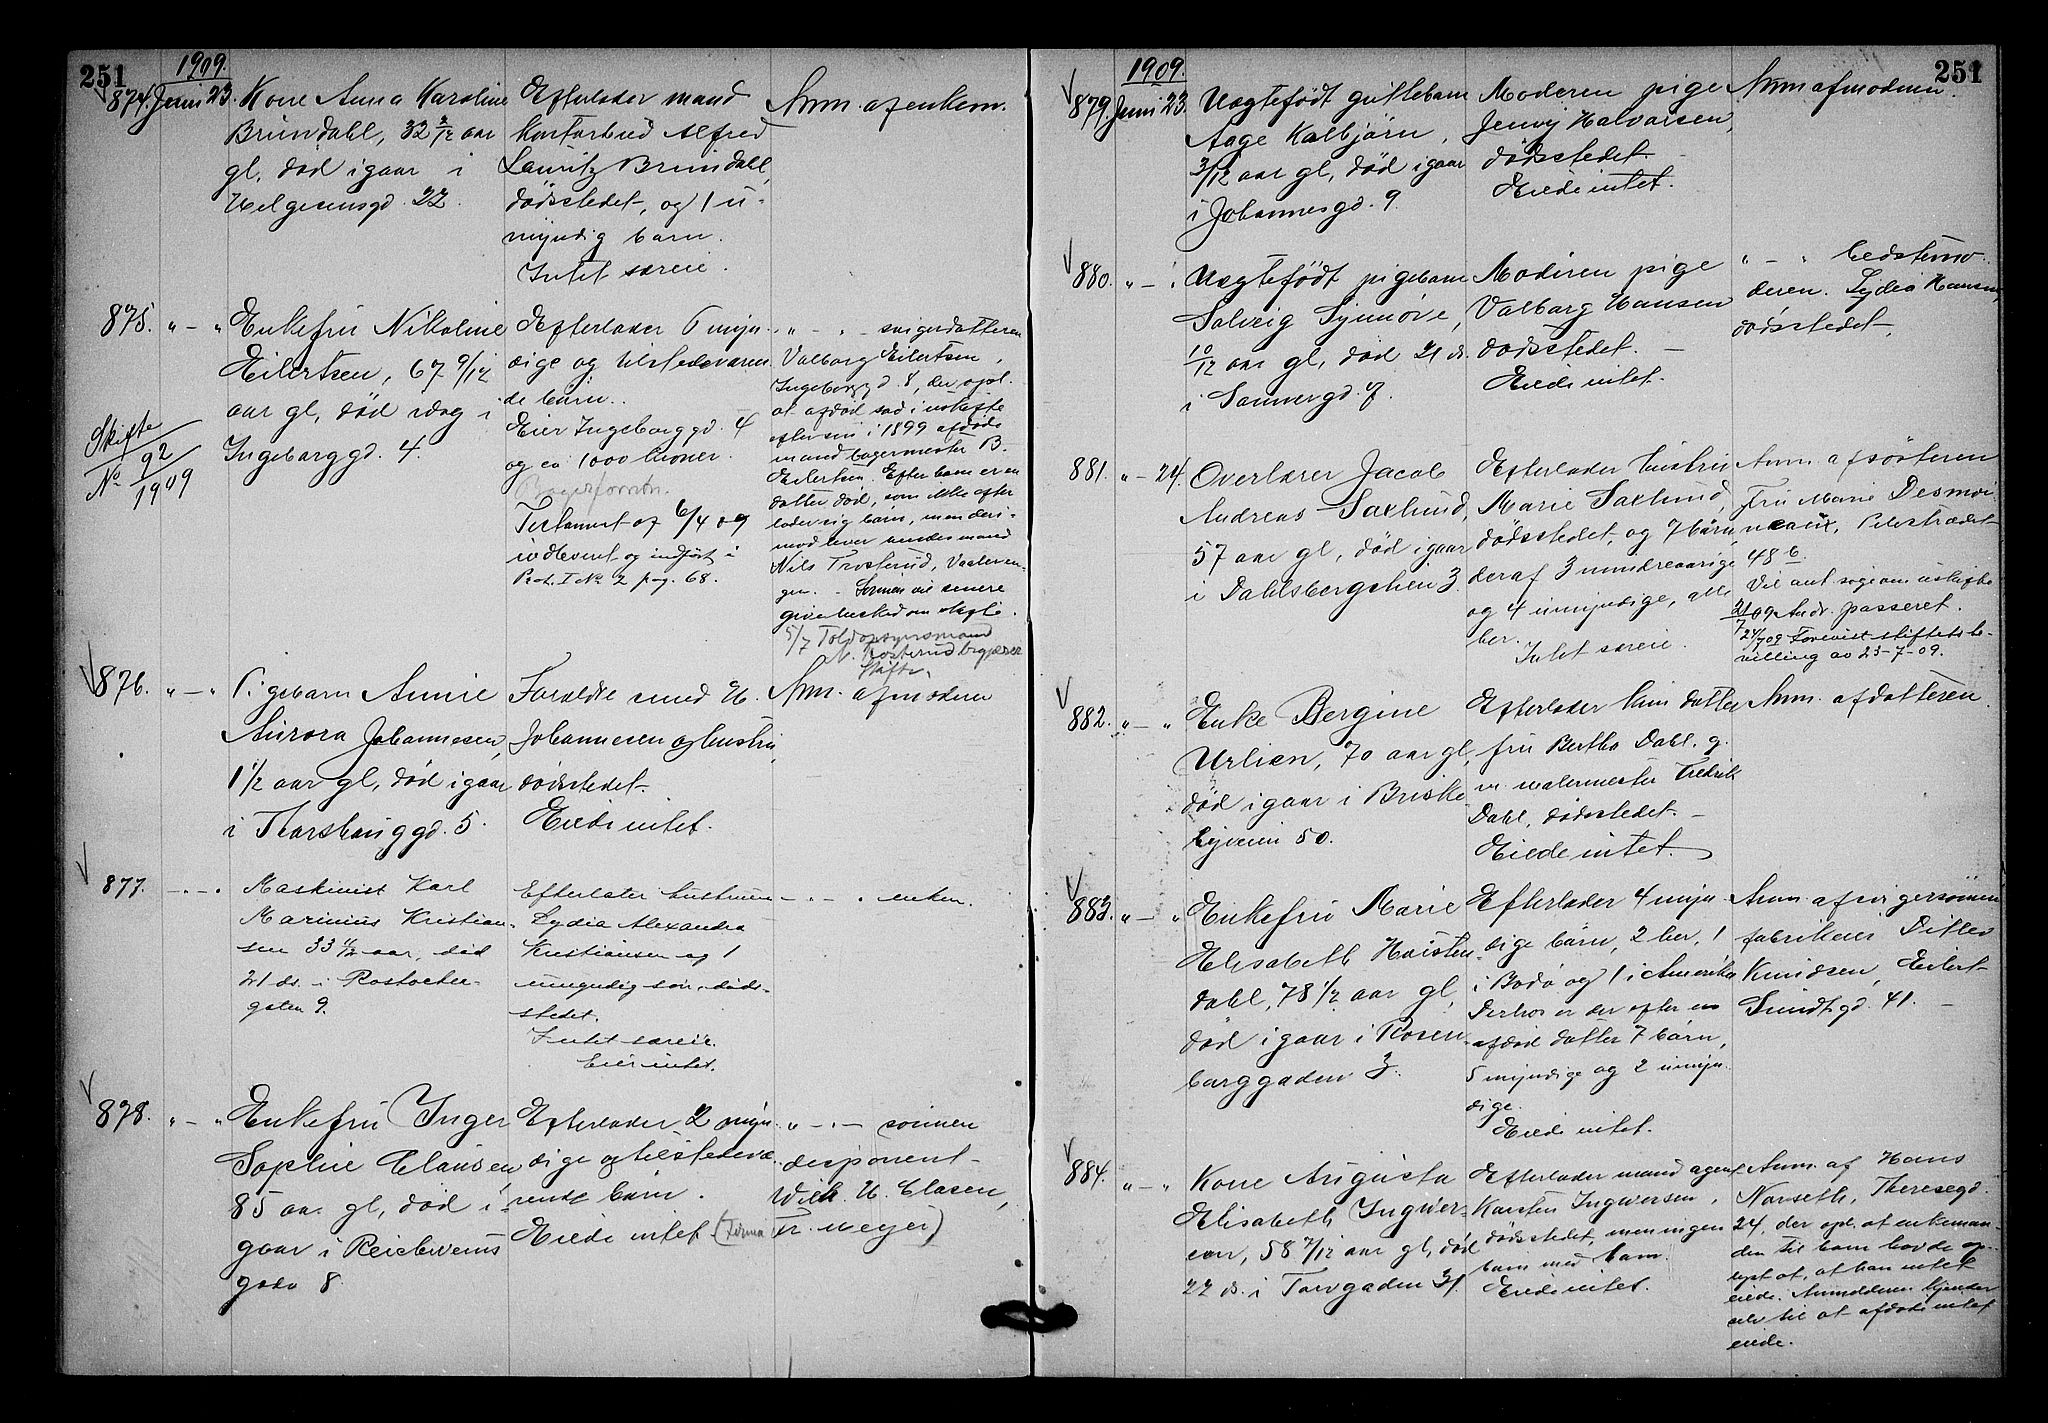 251
1909.
874. Juni 23. Kone Anna Karoline
Brundahl, 32 2/12 aar
gl. død igaar i
Helgesensgd. 22.
Efterlader mand
kontorbud Alfred
Lauritz Brundahl,
dødsstedet, og 1 u-
myndig barn.
Intet særeie.
Anm. af enkem.
875. " - " Enkefru Nikoline
Eilertsen, 67 9/12
aar gl., død idag i
Ingeborggd. 4.
Skifte
No 92/1909
Efterlader 6 myn-
dige og tilstedeværen-
de børn.
Eier Ingeborggd. 4
og ca 1000 kroner.
Testament af 6/4 09
indlevert og indført i
Prot. I No 2 pag. 68.
" - " svigerdatteren
Valborg Eilertsen,
Ingeborggd. 8, der opl.
at afdød sad i uskifte
efter sin i 1899 afdøde
mand bagermester B.
Eilertsen. Efter ham er en
datter død, som ikke efter-
lader sig børn, men deri-
mod lever hendes mand
Nils Trosterud, Vaaleren-
gen. - Sønnen vil senere
give besked om skifte.
5/7 Toldopsynsmand
N. Trosterud begjærer
Skifte.
876. " - " Pigebarn Annie
Aurora Johannesen,
1 1/2 aar gl., død igaar
i Thorshauggd. 5.
Forældre smed H.
Johannesen og hustru,
dødsstedet.
Eiede intet.
Anm. af moderen
877. - " - " Maskinist Karl
Marinius Kristian-
sen 33 4/12 aar, død
21 ds. i Rostocker-
gaten 9.
Efterlater hustruen
Lydia Alexandra
Kristiansen og 1
umyndig søn, døds-
stedet.
Intet særeie.
Eier intet.
- " - " enken.
878. " - " Enkefru Inger
Sophie Clausen
85 aar gl., død i-
gaar i Reichweins
gade 8.
Efterlader 2 myn-
dige og tilstedevæ-
rende børn.
Eiede intet (Firma Fr. Meyer)
" - " - sønnen
disponent
Wilh. H. Clasen,
251
1909.
879. Juni 23. Uægtefødt guttebarn
Aage Kolbjørn,
3/12 aar gl., død igaar
i Johannesgd. 9.
Moderen pige
Jenny Halvorsen,
dødsstedet. -
Eiede intet.
Anm af moderen.
880. " - " Uægtefødt pigebarn
Solveig Synnøve,
10/12 aar gl., død 21 ds.
i Sannergd. 7.
Moderen pige
Valborg Hansen
dødsstedet. -
Eiede intet.
" - " bedstemo-
deren. Lydia Hansen,
dødsstedet.
881. " - 24. Overlærer Jacob
Andreas Saxlund,
57 aar gl., død igaar
i Dahlsbergstien 3.
Efterlader hustru
Marie Saxlund,
dødsstedet, og 7 børn,
deraf 3 mindreaarige
og 4 umyndige, alle
her.
Intet særeie.
Anm. af søsteren
Fru Marie Desmoi-
neaux, Pilestrædet
48 b.
Vil ant. søge om uskifte
2/7 09 Andr. passeret.
24/7 09 Forevist stiftets be-
villing av 23-7-09.
882. " - " Enke Bergine
Urlien, 70 aar gl.,
død igaar i Briske-
byveien 50.
Efterlader kun datter
fru Bertha Dahl, g.
m. malermester Fredrik
Dahl, dødsstedet. -
Eiede intet.
Anm. af datteren.
883. " - " Enkefru Marie
Elisabeth Hvisten-
dahl, 78 1/2 aar gl,
død igaar i Rosen-
borggaden 3.
Efterlader 4 myn-
dige børn, 2 her, 1
i Bodø og 1 i Amerika
Derhos er der efter en
afdød datter 7 børn,
5 myndige og 2 umyn-
dige.
Eiede intet.
Anm. af svigersønnen
fabrikeier Ditlev
Knudsen, Eilert
Sundtgd. 41. -
884. " - " Kone Augusta
Elisabeth Ingwer-
sen, 58 7/12 aar gl, død
22 ds. i Torvgaden 31.
Efterlader mand agent
Karsten Ingwersen,
dødsstedet, men ingen
barn med ham.
Eiede intet.
Anm. af Hans
Norseth, Theresegd.
24, der opl. at enkeman-
den til ham havde op-
lyst at, at han intet
eiede. Anmelderen kjender
selv til at afdøde intet
eiede.